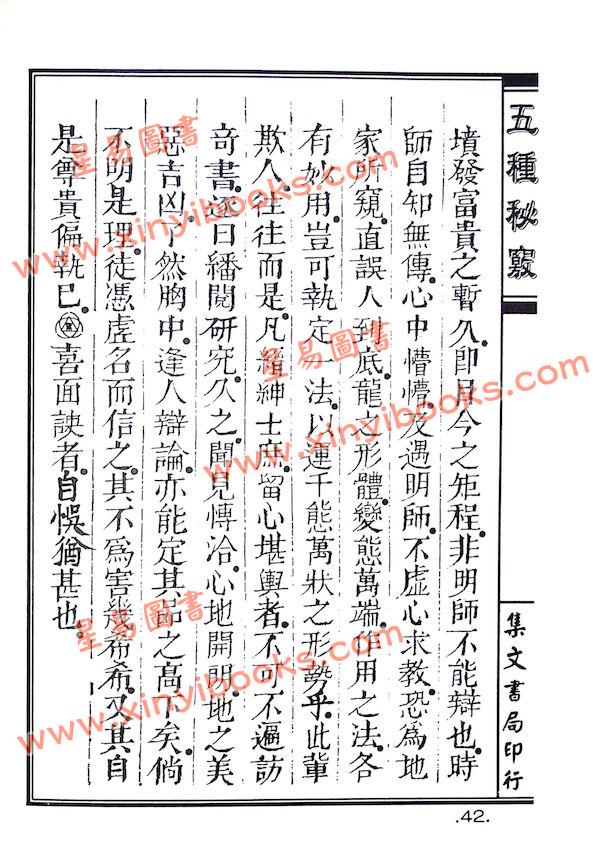 五種秘竅
墳發富貴之暫久。即目今之矩程。非明師不能辯也。時
師自知無傳。心中懵懵。及遇明師。不虛心求教。恐為地
家所窺。直誤人到底。龍之形體。變態萬端。作用之法。各
有妙用。豈可執定一法。以運千態萬狀之形勢乎。此輩
欺人。往往而是。凡縉紳士庶。留心堪輿者。不可不遍訪
奇書。逐日繙閱研究。久之。聞見博洽。心地開明。地之美
惡吉凶。了然胸中。逢人辯論。亦能定其品之高下矣。倘
不明是理。徒憑虛名而信之。其不為害幾希希。又其自
是尊貴偏執巳。喜面諛者。自悞猶甚也。
集文書局印行
.42.
星易圖書
www.xinyibooks.com
星易圖書
www.xinyibooks.com
星易圖書
www.xinyibooks.com